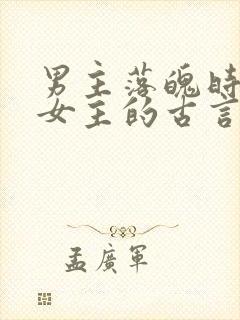 男主落魄時
女主的古言
孟廣軍